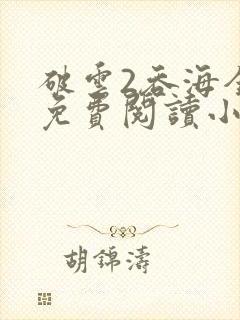 破雲2吞海全
免費閱讀小
胡錦濤